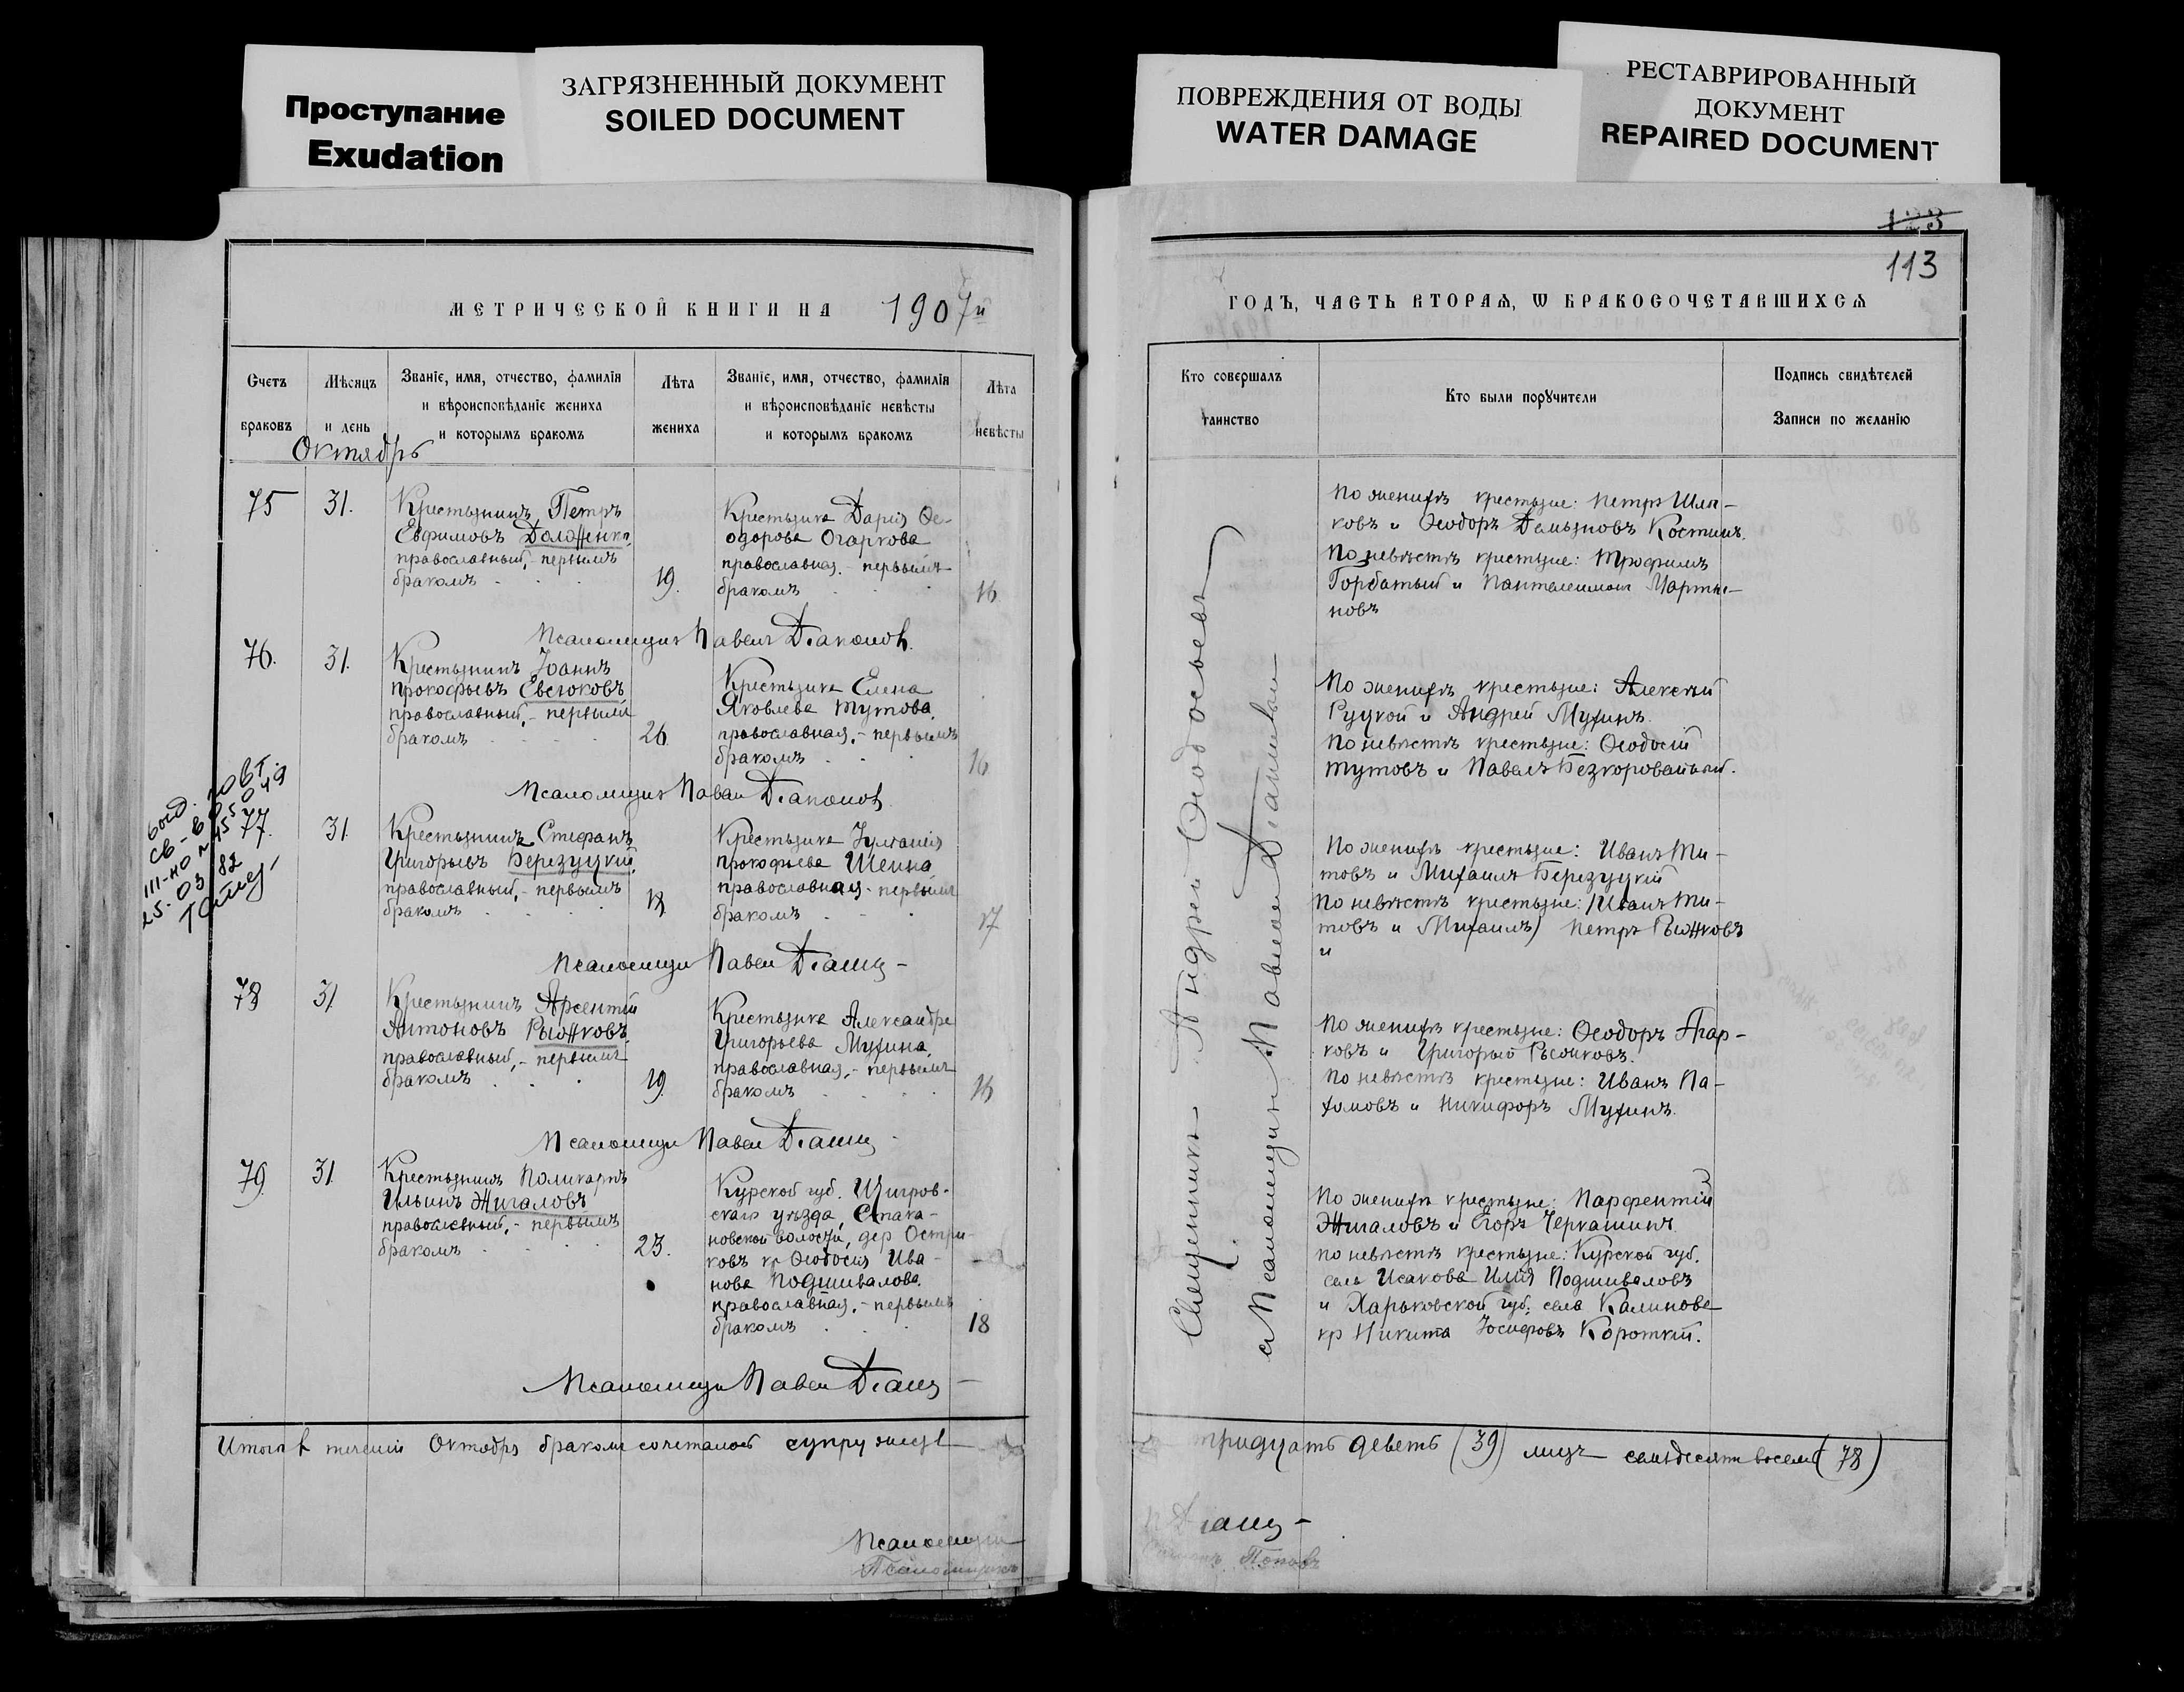 Проступание
Exudation
ЗАГРЯЗНЕННЫЙ ДОКУМЕНТ
SOILED DOCUMENT
ПОВРЕЖДЕНИЯ ОТ ВОДЫ
WATER DAMAGE
РЕСТАВРИРОВАННЫЙ
ДОКУМЕНТ
REPAIRED DOCUMENT
МЕТРИЧЕСКОЙ КНИГИ НА 1907й
Счетъ браковъ
Мѣсяцъ и день
Званіе, имя, отчество, фамилія
и вѣроисповѣданіе жениха
и которымъ бракомъ
Лѣта жениха
Званіе, имя, отчество, фамилія
и вѣроисповѣданіе невѣсты
и которымъ бракомъ
Лѣта невѣсты
Октябрь
75 31.
Крестьянинъ Петръ
Евфимовъ Долженко,
православный, - первымъ
бракомъ 19.
Крестьянка Дарія Ѳе-
одорова Огаркова
православная. - первымъ
бракомъ 16
Псаломщикъ Павелъ Діаконовъ.
76. 31.
Крестьянинъ Іоаннъ
Прокофьевъ Евсюковъ
православный, - первымъ
бракомъ 26
Крестьянка Елена
Яковлева Тутова,
православная, - первымъ
бракомъ 16
Псаломщикъ Павелъ Діаконовъ
77. 31
Крестьянинъ Стефанъ
Григорьевъ Березуцкій,
православный, - первымъ
бракомъ 18
Крестьянка Іуліанія
Прокофьева Шеина,
православная - первымъ
бракомъ 17
Псаломщи Павел
78 31
Крестьянинъ Арсентій
Антоновъ Рыжковъ,
православный, - первымъ
бракомъ 19.
Крестьянка Александра
Григорьева Мухина,
православная, - первымъ
бракомъ 16
Псаломщи Павел
79. 31.
Крестьянинъ Поликарпъ
Ильинъ Жигаловъ
православный, - первымъ
бракомъ 23.
Курской губ. Щигров-
скаго уѣзда, Стака-
новской волости, дер Остри-
ковъ кр Ѳеодосія Ива-
нова Подшивалова,
православная, - первымъ
бракомъ 18
Псаломщи Павел
Итого въ теченіи Октября бракомъ сочеталось супружествъ
Псаломщи
Псаломщикъ
123
113
ГОДЪ, ЧАСТЬ ВТОРАЯ, Ѡ БРАКОСОЧЕТАВШИХСЯ
Кто совершалъ таинство
Кто были поручители
Подпись свидѣтелей
Записи по желанію
Священникъ Андрей Ѳеодосьевъ
съ Псаломщикомъ Павломъ Діаконовымъ
По женихѣ крестьяне: Петръ Шля-
ковъ и Ѳеодоръ Демьяновъ Костинъ.
По невѣстѣ крестьяне: Трофимъ
Горбатый и Пантелеимонъ Марты-
новъ
По женихѣ крестьяне: Алексѣй
Руцкой и Андрей Мухинъ.
По невѣстѣ крестьяне: Ѳеодосій
Тутовъ и Павелъ Безкоровайный.
По женихѣ крестьяне: Иванъ Ти-
товъ и Михаилъ Березуцкій
По невѣстѣ крестьяне: (Иванъ Ти-
товъ и Михаилъ) Петръ Рыжковъ
и
По женихѣ крестьяне: Ѳеодоръ
и Григорій Рыжковъ.
По невѣстѣ крестьяне: Иванъ Па-
хомовъ и Никифоръ Мухинъ.
По женихѣ крестьяне: Парфентій
Жигаловъ и Егоръ Черкашинъ
по невѣстѣ крестьяне: Курской губ.
села Исакова Илія Подшиваловъ
и Харьковской губ. села Калинова
кр Никита Іосифовъ Короткій.
тридцать девять (39) лицъ семьдесятъ восемь (78)
Поповъ